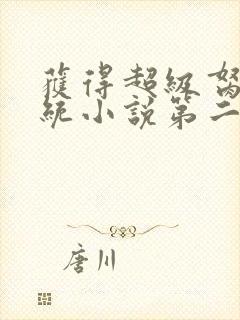 獲得超級
統小說第二
唐川